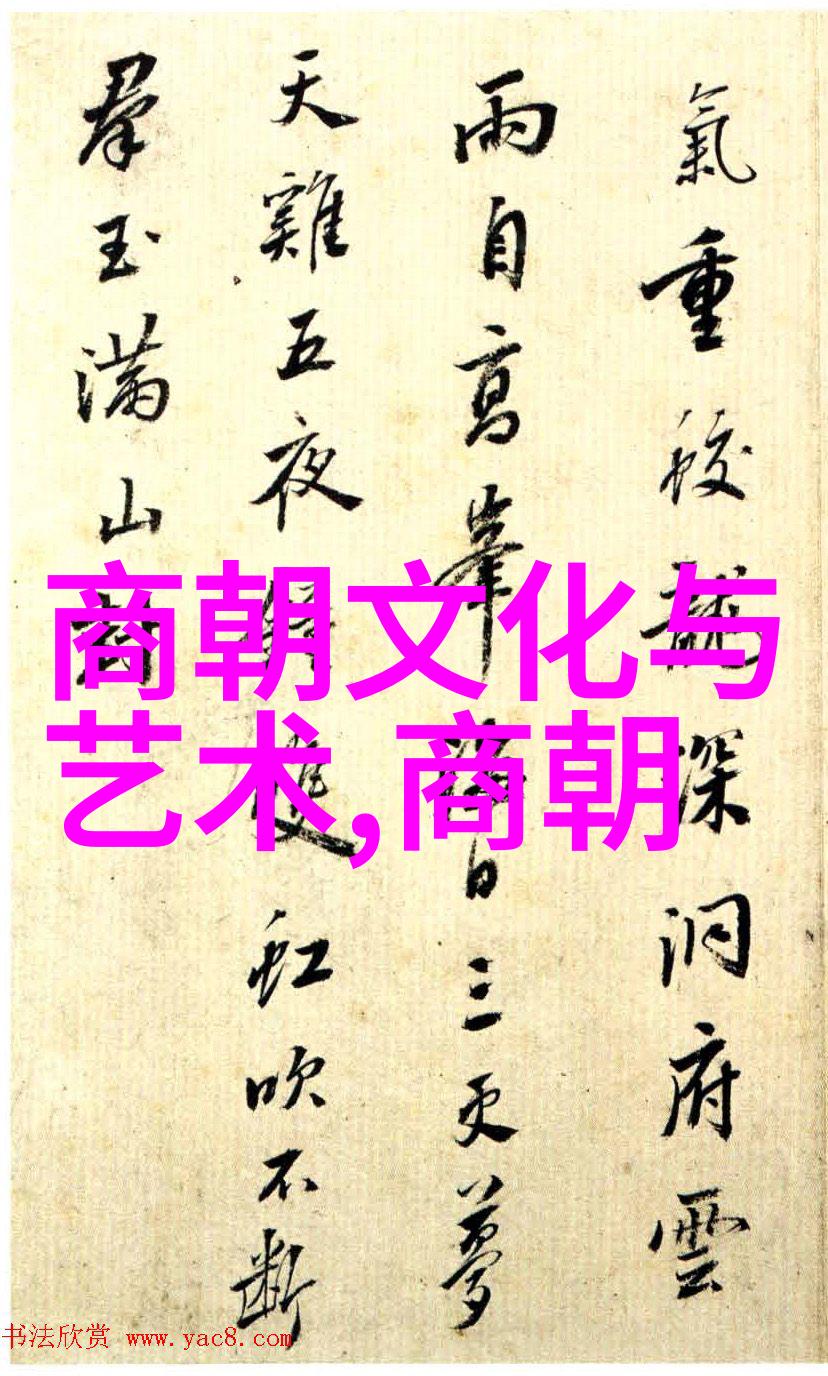 氣重蛟龍深洞府雲
雨自高峯日三更夢
天雞五夜雙虹吹不斷
羣玉满山
商朝文化与
艺术,商朝
书法欣赏 www.yac8.com